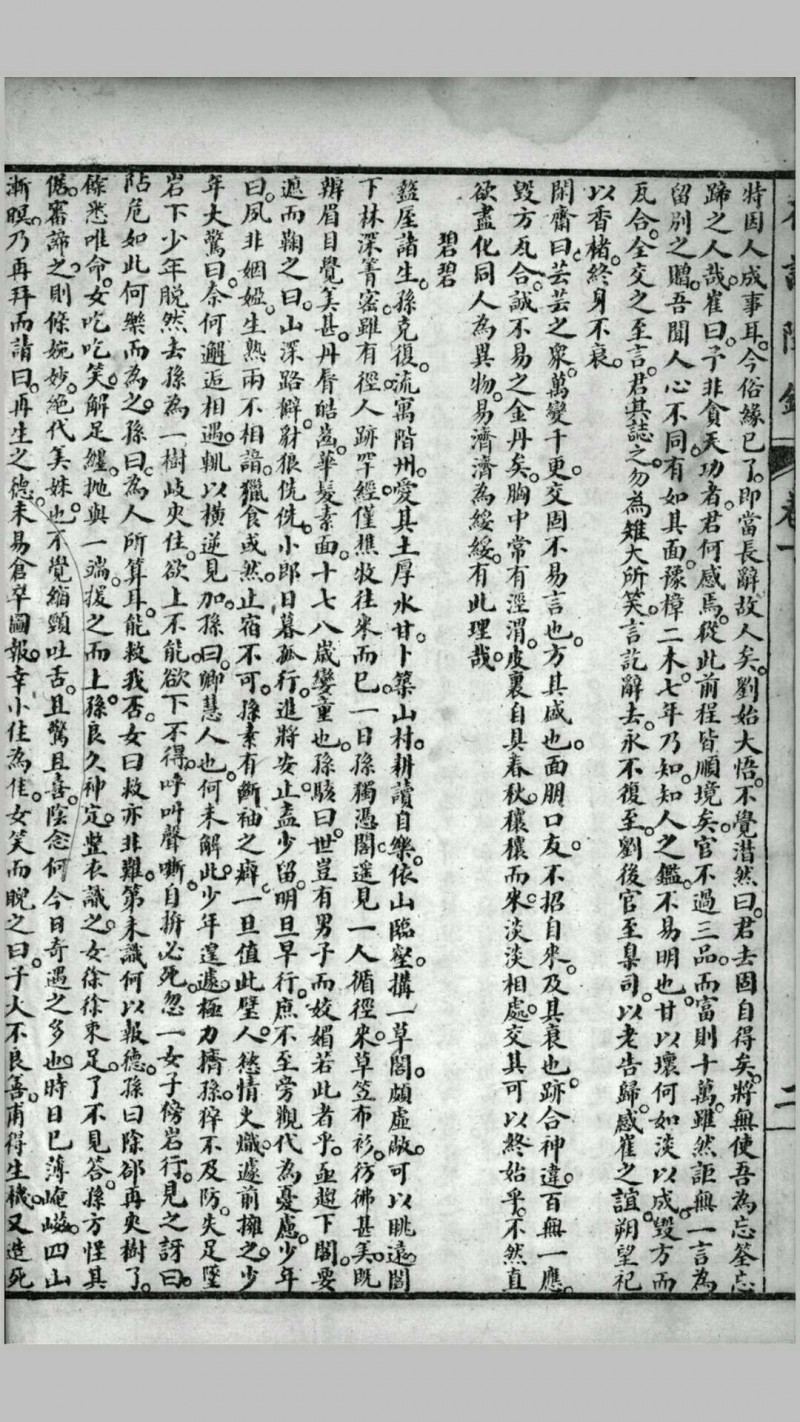 夜譚隨錄 卷一 二
特因人成事耳。今俗緣已了。即當長辭故人矣。劉始大悟。不覺潸然曰。君去固自得矣。將無使吾為忘筌忘
蹄之人哉。崔曰。予非貪天功者。君何感焉。從此前程皆順境矣。官不過三品。而富則十萬。雖然詎無一言為
留別之贈。吾聞人心不同。有如其面。豫樟二木。七年乃知。知人之鑑。不易明也。甘以壞何如淡以成。毀方而
瓦合。全交之至言。君其誌之。勿為雉大所笑。言訖辭去。永不復至。劉後官至臬司。以老告歸。感崔之誼。朔望祀
以香楮。終身不衰。
閒齋曰。芸芸之衆。萬變千更。交固不易言也。方其盛也。面朋口友。不招自來。及其衰也。跡合神違。百無一應。
毀方瓦合。誠不易之金丹矣。胸中常有涇渭。皮裏自具春秋。穰穰而來。淡淡相處。交其可以終始乎。不然直
欲盡化同人為異物。易濟濟為綏綏。有此理哉。
碧碧
盩厔諸生。孫克復。流寓階州。愛其土厚水甘。卜築山村。耕讀自樂。依山臨壑。搆一草閣。頗虛敞。可以眺遠。閣
下林深箐密。雖有徑。人跡罕經。僅樵牧往來而已。一日孫獨憑閣。遙見一人循徑來。草笠布衫。彷彿甚美。既
辨眉目。覺美甚。丹脣皓齒。華髮素面。十七八歲孌童也。孫駭曰。世豈有男子而姣媚若此者乎。亟趨下閣。要
遮而鞠之曰。山深路僻。豺狼侁侁。小郎日暮孤行。進將安止。盍少留。明旦早行。庶不至旁觀代為憂慮。少年
曰。夙非姻婭。生熟兩不相諳。獵食或然。止宿不可。孫素有斷袖之癖。一旦值此璧人。慾情火熾。遽前擁之。少
年大驚曰。奈何邂逅相遇。輒以橫逆見加。孫曰。卿慧人也。何未解此。少年遑遽。極力擠孫。孫猝不及防。失足墜
岩下。少年脫然去。孫為一樹歧夾住。欲上不能。欲下不得。呼叫聲嘶。自拚必死。忽一女子傍岩行。見之訝曰。
阽危如此。何樂而為之。孫曰。為人所算耳。能救我否。女曰。救亦非難。第未識何以報德。孫曰。除卻再夾樹了。
餘悉唯命。女吃吃笑。解足纏。拋與一端。援之而上。孫良久神定。整衣謝之。女徐徐束足。了不見答。孫方怪其
倨。審諦之。則條婉妙。絕代美姝也。不覺縮頸吐舌。且驚且喜。陰念何今日奇遇之多也。時日已薄崦嵫。四山
漸暝。乃再拜而請曰。再生之德。未易倉卒圖報。幸小住為佳。女笑而睨之曰。子大不良善。甫得生機。又造死